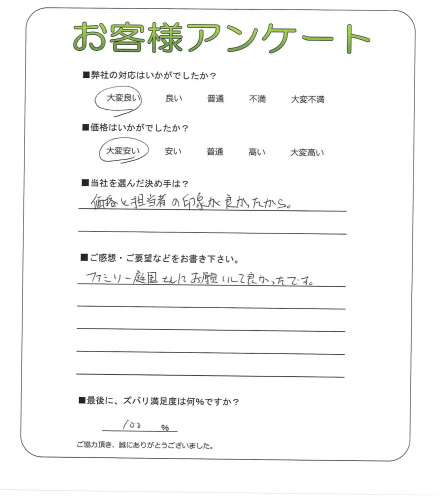 お客様アンケート
■弊社の対応はいかがでしたか？
大変良い 良い 普通 不満 大変不満
■価格はいかがでしたか？
大変安い 安い 普通 高い 大変高い
■当社を選んだ決め手は？
価格と担当者の印象が良かったから。
■ご感想・ご要望などをお書き下さい。
ファミリー庭園さんにお願いして良かったです。
■最後に、ズバリ満足度は何％ですか？
100 ％
ご協力頂き、誠にありがとうございました。